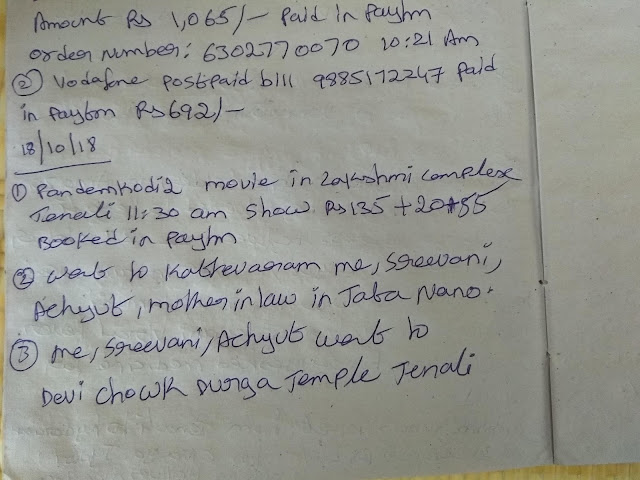 Amount Rs 1,065/- Paid in Paytm
order number: 6302770070 10:21 Am
② Vodafone postpaid bill 9885172247 Paid
in Paytm Rs 692/-
18/10/18
① Pandemkodi2 movie in Lakshmi complex
Tenali 11:30 am show Rs 135 + 20
Booked in Paytm
② went to Kathevaram me, Sreevani,
Achyut, mother in law in Tata Nano.
③ me, Sreevani, Achyut went to
Devi chowk Durga Temple Tenali